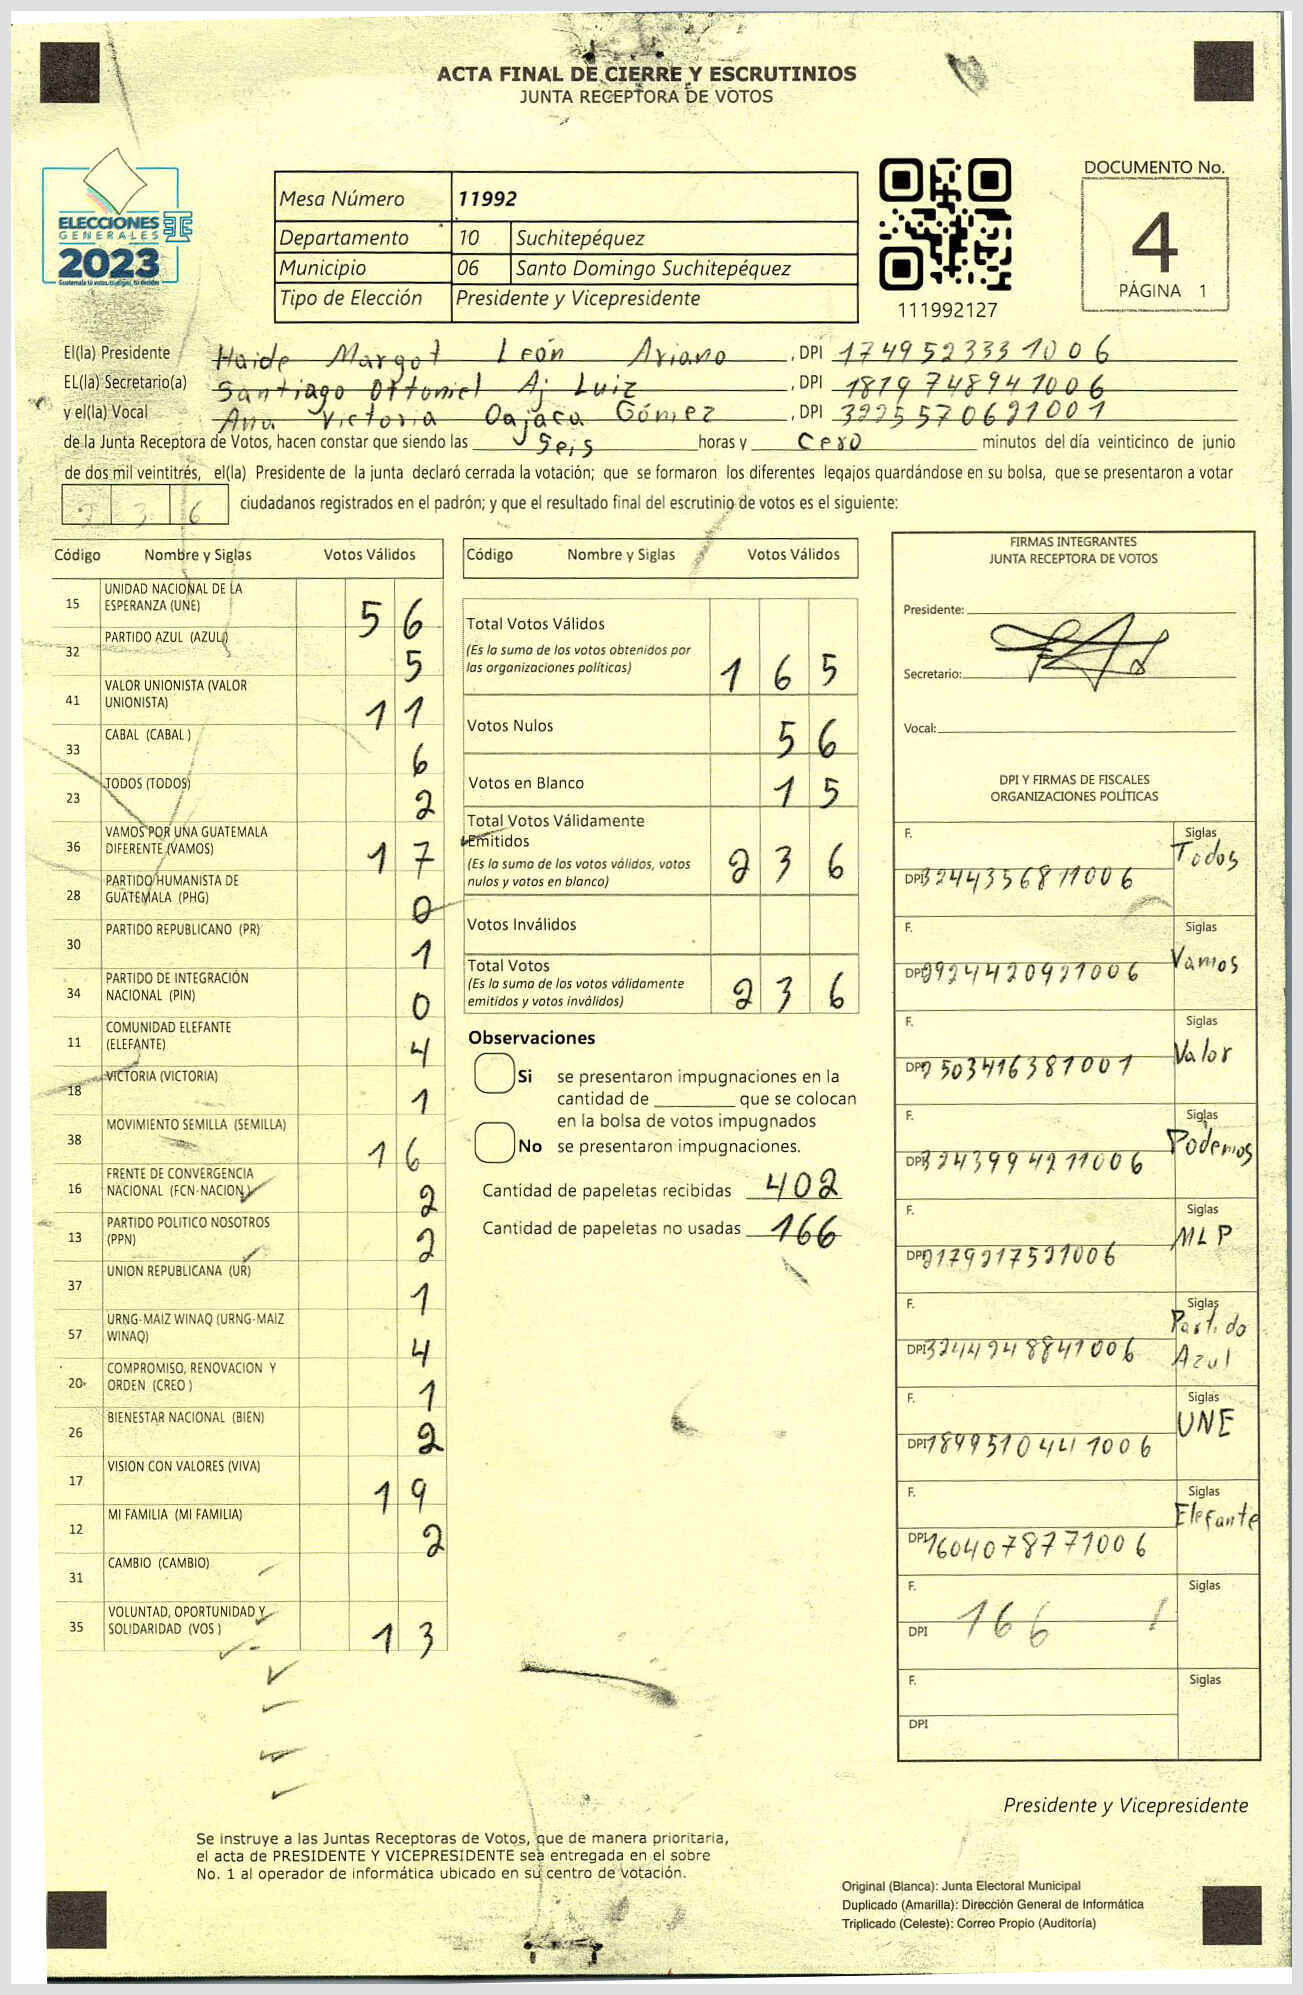 ACTA FINAL DE CIERRE Y ESCRUTINIOS
JUNTA RECEPTORA DE VOTOS
ELECCIONES
GENERALES
2023
Mesa Número 11992
Departamento 10 Suchitepéquez
Municipio 06 Santo Domingo Suchitepéquez
Tipo de Elección Presidente y Vicepresidente
111992127
DOCUMENTO No.
4
PÁGINA 1
El(la) Presidente Haide Margot León Ariano, DPI 1749523331006
EL(la) Secretario(a) Santiago Ottoniel Aj Luiz, DPI 1819748941006
y el(la) Vocal Ana Victoria Oajaca Gómez, DPI 3225570621001
de la Junta Receptora de Votos, hacen constar que siendo las Seis horas y cero minutos del día veinticinco de junio
de dos mil veintitrés, el(la) Presidente de la junta declaró cerrada la votación; que se formaron los diferentes legajos quardándose en su bolsa, que se presentaron a votar
236 ciudadanos registrados en el padrón; y que el resultado final del escrutinio de votos es el siguiente:
Código Nombre y Siglas Votos Válidos
15 UNIDAD NACIONAL DE LA
ESPERANZA (UNE) 56
32 PARTIDO AZUL (AZUL) 5
41 VALOR UNIONISTA (VALOR
UNIONISTA) 11
33 CABAL (CABAL ) 6
23 TODOS (TODOS) 2
36 VAMOS POR UNA GUATEMALA
DIFERENTE (VAMOS) 17
28 PARTIDO HUMANISTA DE
GUATEMALA (PHG) 0
30 PARTIDO REPUBLICANO (PR) 1
34 PARTIDO DE INTEGRACIÓN
NACIONAL (PIN) 0
11 COMUNIDAD ELEFANTE
(ELEFANTE) 4
18 VICTORIA (VICTORIA) 1
38 MOVIMIENTO SEMILLA (SEMILLA) 16
16 FRENTE DE CONVERGENCIA
NACIONAL (FCN-NACION) 2
13 PARTIDO POLITICO NOSOTROS
(PPN) 2
37 UNION REPUBLICANA (UR) 1
57 URNG-MAIZ WINAQ (URNG-MAIZ
WINAQ) 4
20 COMPROMISO, RENOVACION Y
ORDEN (CREO ) 1
26 BIENESTAR NACIONAL (BIEN) 2
17 VISION CON VALORES (VIVA) 19
12 MI FAMILIA (MI FAMILIA) 2
31 CAMBIO (CAMBIO)
35 VOLUNTAD, OPORTUNIDAD Y
SOLIDARIDAD (VOS ) 13
Código Nombre y Siglas Votos Válidos
Total Votos Válidos
(Es la suma de los votos obtenidos por
las organizaciones políticas) 165
Votos Nulos 56
Votos en Blanco 15
Total Votos Válidamente
Emitidos
(Es la suma de los votos válidos, votos
nulos y votos en blanco) 236
Votos Inválidos
Total Votos
(Es la suma de los votos válidamente
emitidos y votos inválidos) 236
Observaciones
Si se presentaron impugnaciones en la
cantidad de ________ que se colocan
en la bolsa de votos impugnados
No se presentaron impugnaciones.
Cantidad de papeletas recibidas 402
Cantidad de papeletas no usadas 166
FIRMAS INTEGRANTES
JUNTA RECEPTORA DE VOTOS
Presidente:
Secretario:
Vocal:
DPI Y FIRMAS DE FISCALES
ORGANIZACIONES POLÍTICAS
F. Siglas Todos
DPI 3244356811006
F. Siglas Vamos
DPI 2924420921006
F. Siglas Valor
DPI 2503416381001
F. Siglas Podemos
DPI 3243994211006
F. Siglas MLP
DPI 2179217521006
F. Siglas Partido
Azul
DPI 3244248841006
F. Siglas UNE
DPI 1899510441006
F. Siglas Elefante
DPI 1604078771006
F. Siglas
DPI 166
F. Siglas
DPI
Presidente y Vicepresidente
Se instruye a las Juntas Receptoras de Votos, que de manera prioritaria,
el acta de PRESIDENTE Y VICEPRESIDENTE sea entregada en el sobre
No. 1 al operador de informática ubicado en su centro de votación.
Original (Blanca): Junta Electoral Municipal
Duplicado (Amarilla): Dirección General de Informática
Triplicado (Celeste): Correo Propio (Auditoría)